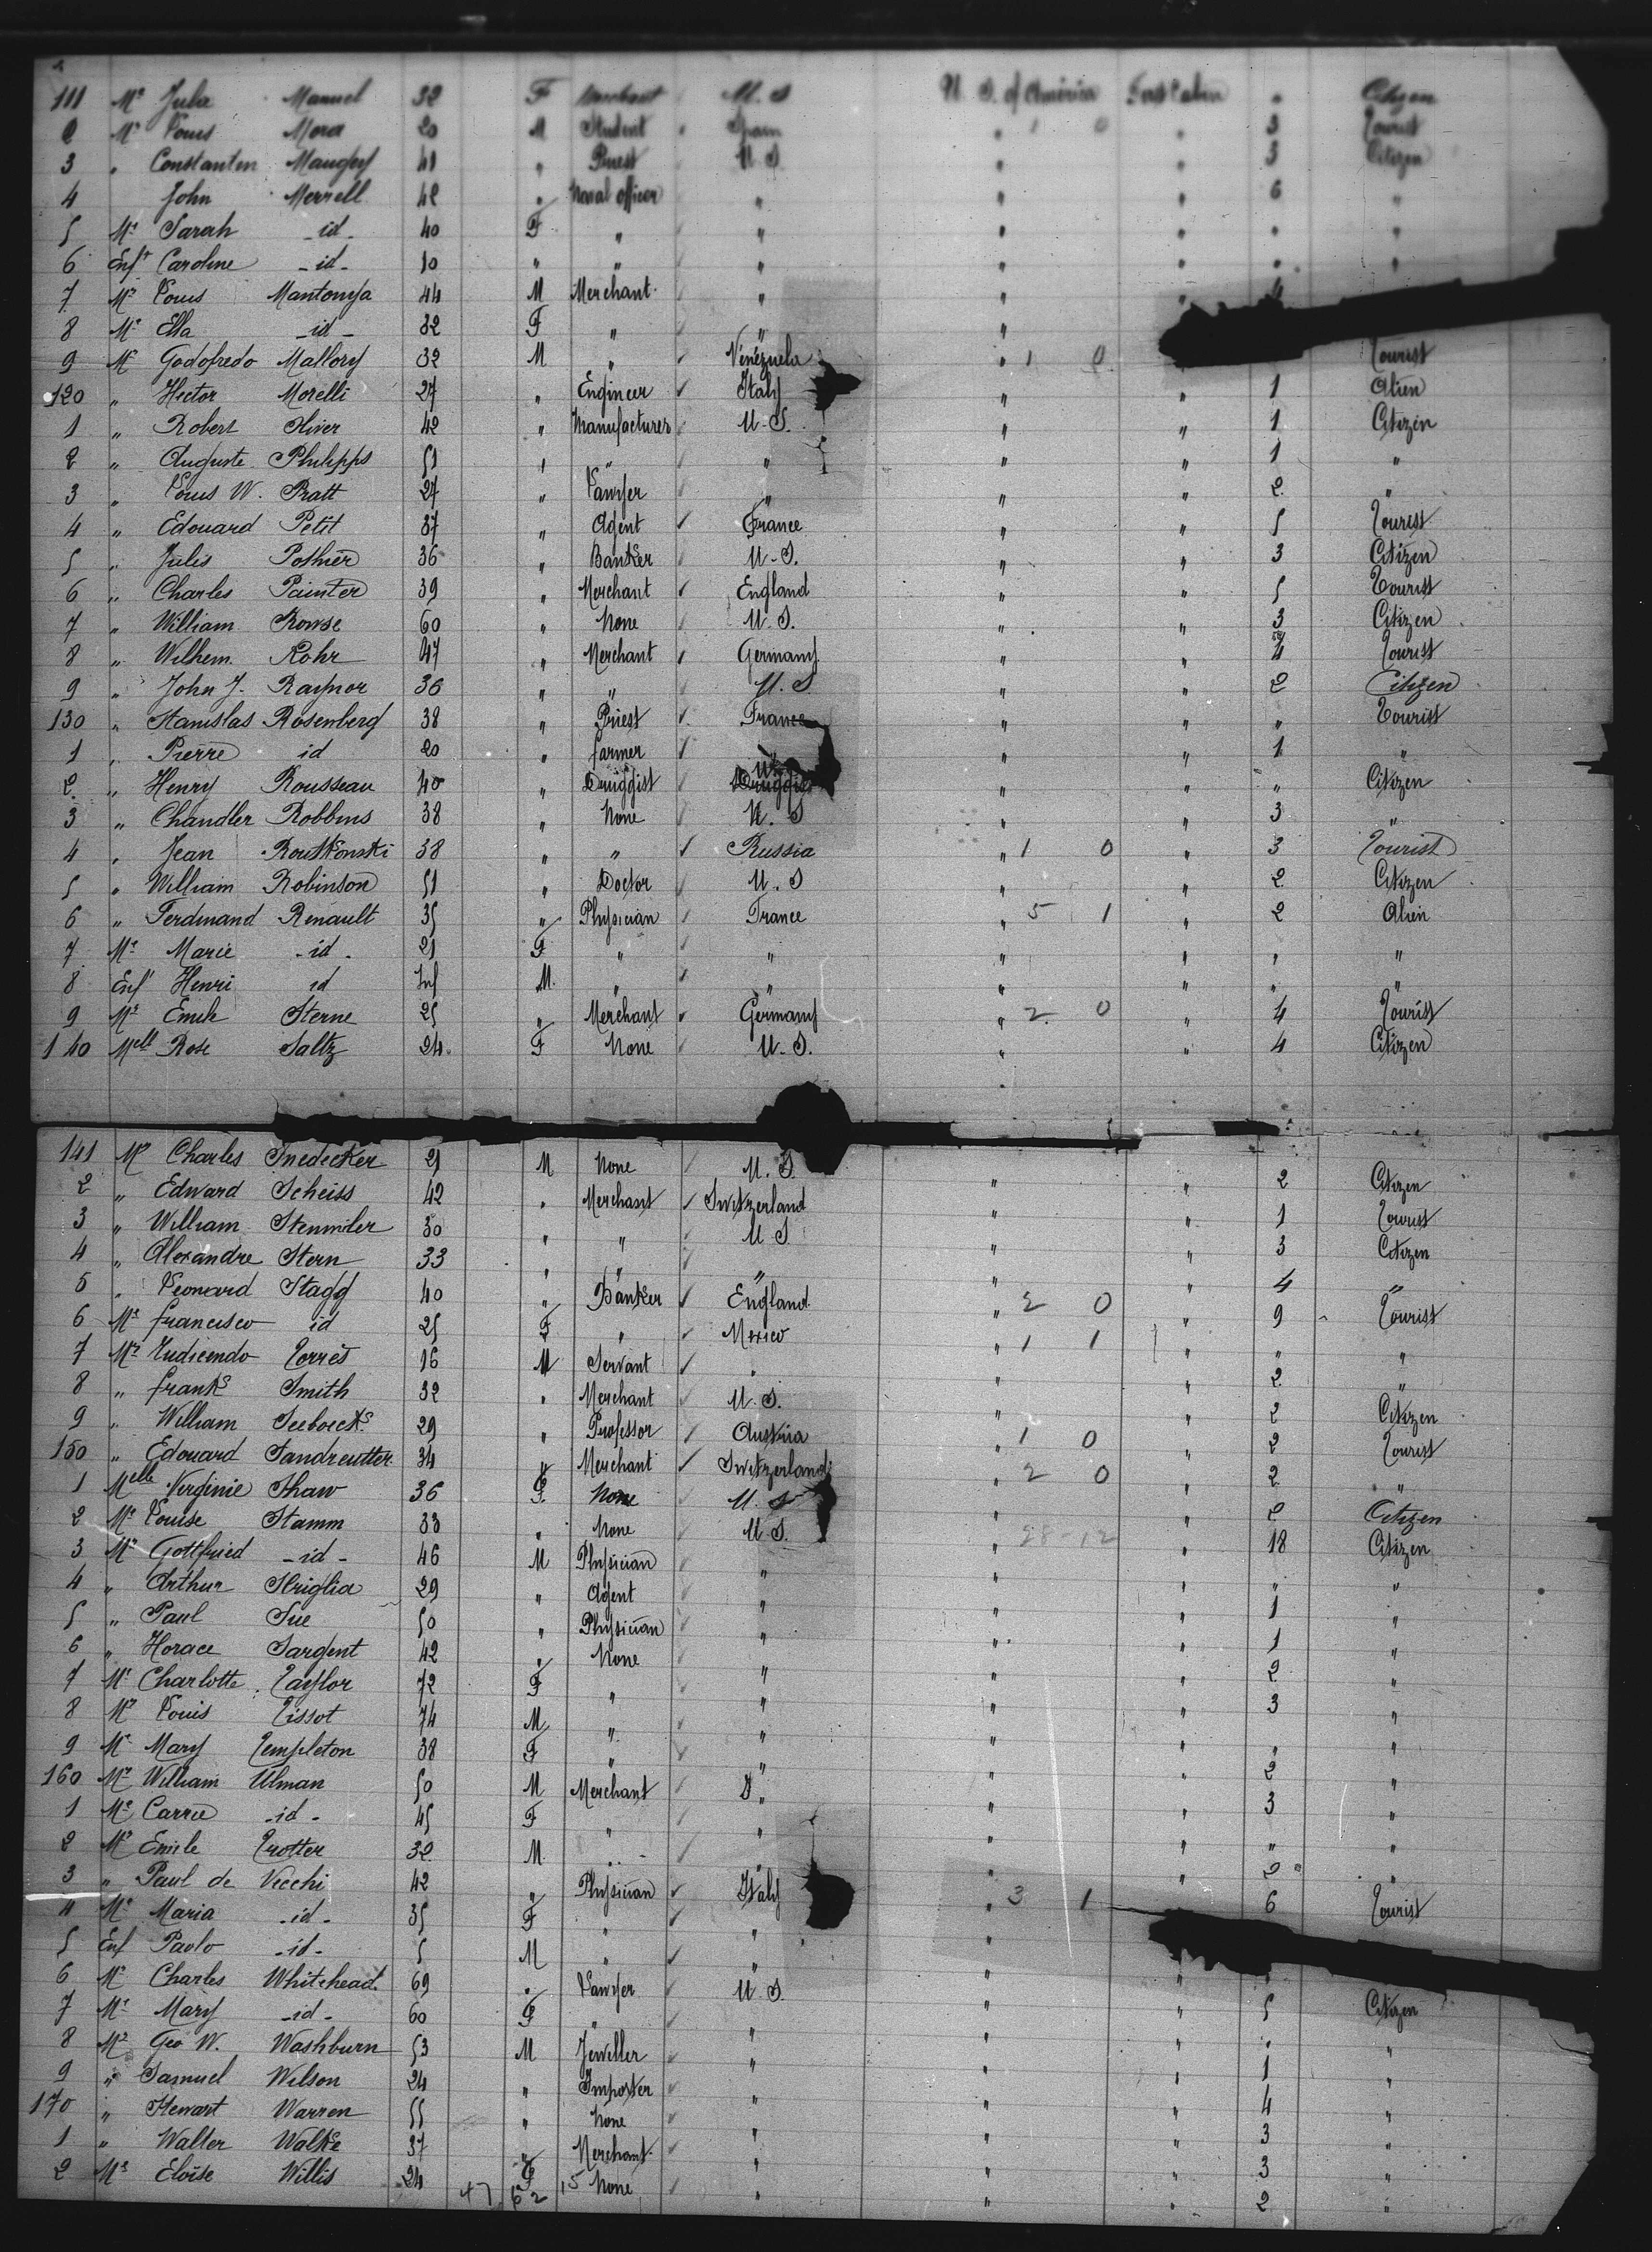 111 Me Julia Manuel 32 F Merchant U. S U. S. of America First Cabin " Citizen
2 Mr Louis Mora 20 M Student Spain " 1 0 " 3 Tourist
3 " Constantin 41 " Priest U. S " " 3 Citizen
4 John Merrell 42 " Naval officer " " " 6 "
5 Me Sarah -id- 40 F " " " " " "
6 Enft Caroline -id- 10 " " " " " " "
7 Mr Louis Mantonya 44 M Merchant " " "
8 Me Ella -id- 32 F " " "
9 Mr Godofredo Mallory 32 M " Vénézuela " 1 0 Tourist
120 " Hector Morelli 27 " Engineer Italy " " 1 Alien
1 " Robert Oliver 42 " Manufacturer U-S. " " 1 Citizen
2 " Auguste Philipps 51 " " " " " 1 "
3 " Louis W. Pratt 27 " Lawyer " " " 2 "
4 " Edouard Petit 37 " Agent France " " 5 Tourist
5 " Jules Pothier 36 " Banker U-S. " " 3 Citizen
6 " Charles Painter 39 " Merchant England " " 5 Tourist
7 " William Rowse 60 " None U. S. " " 3 Citizen
8 " Wilhem Rohr 47 " Merchant Germany " " 4 Tourist
9 " John J. Raynor 36 " " U. S " " 2 Citizen
130 " Stanislas Rosenberg 38 " Priest France " " " Tourist
1 " Pierre id 20 " farmer " " 1 "
2 " Henry Rousseau 40 " Druggist " " " Citizen
3 " Chandler Robbins 38 " None U. S " " 3 "
4 " Jean Routkonski 38 " " Russia " 1 0 " 3 Tourist
5 " William Robinson 51 " Doctor U. S " " 2 Citizen
6 " Ferdinand Renault 35 " Physician France " 5 1 " 2 Alien
7 Me Marie -id- 21 F " " " " " "
8 Enf Henri id Inf M. " " " " " "
9 Mr Emile Sterne 25 " Merchant Germany " 2 0 " 4 Tourist
140 Melle Rose Saltz 24 F None U-S. " " 4 Citizen
141 Mr Charles Snedecker 21 M None U. S. " " 2 Citizen
2 " Edward Scheiss 42 " Merchant Switzerland " " 1 Tourist
3 " William Stenmiler 30 " " U S " " 3 Citizen
4 " Alexandre Stern 33 " " " " " 4 "
5 " Leonard Stagg 40 " Banker England " 2 0 " 9 Tourist
6 Me francisco id 25 F " Mexico " 1 1 " " "
7 Mr Torrès 16 M Servant " " " 2 "
8 " frank Smith 32 " Merchant U. S. " " 2 Citizen
9 " William Seeboeck 29 " Professor Austria " 1 0 " 2 Tourist
150 " Edouard Sandreutter 34 " Merchant Switzerland " 2 0 " 2 "
1 Melle Virginie Shaw 36 F. None U. S " " 2 Citizen
2 Me Louise Stamm 33 " None U S. " 28-12 " 18 Citizen
3 Mr Gottfried -id- 46 M Physician " " " " "
4 " Arthur Striglia 29 " Agent " " " 1 "
5 " Paul Sue 50 " Physician " " " 1 "
6 " Horace Sargent 42 " None " " " 2 "
7 Me Charlotte Taylor 72 F " " " " 3 "
8 Mr Louis Tissot 74 M " " " " " "
9 Me Mary Templeton 38 F " " " " 2 "
160 Mr William Ulman 50 M Merchant " " " 3 "
1 Me Carrie -id- 45 F " " " " " "
2 Mr Emile Trotter 32 M. " " " " 2 "
3 " Paul de Vecchi 42 " Physician Italy " 3 1 6 Tourist
4 Me Maria -id- 35 F " " "
5 Enf Paolo -id- 5 M " " "
6 Mr Charles Whitehead 69 " Lawyer U. S. " " 5 Citizen
7 Me Mary -id- 60 F " " " " " "
8 Mr Geo W. Washburn 53 M Jeweller " " " 1 "
9 " Samuel Wilson 24 " Importer " " " 4 "
170 " Stewart Warren 55 " None " " " 3 "
1 " Walter Walke 37 " Merchant " " " 3 "
2 Me Eloïse Willis 24 F None " " " 2 "
47 62 15